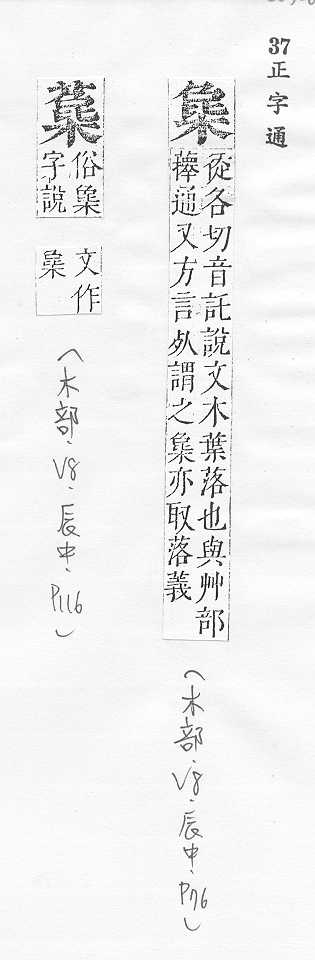 37正字通
從各切音託說文木葉落也與艸部
蘀通又方言謂之亦取落義
(木部.V8.辰中.P76)
俗
字說
文作
(木部.V8.辰中.P116)